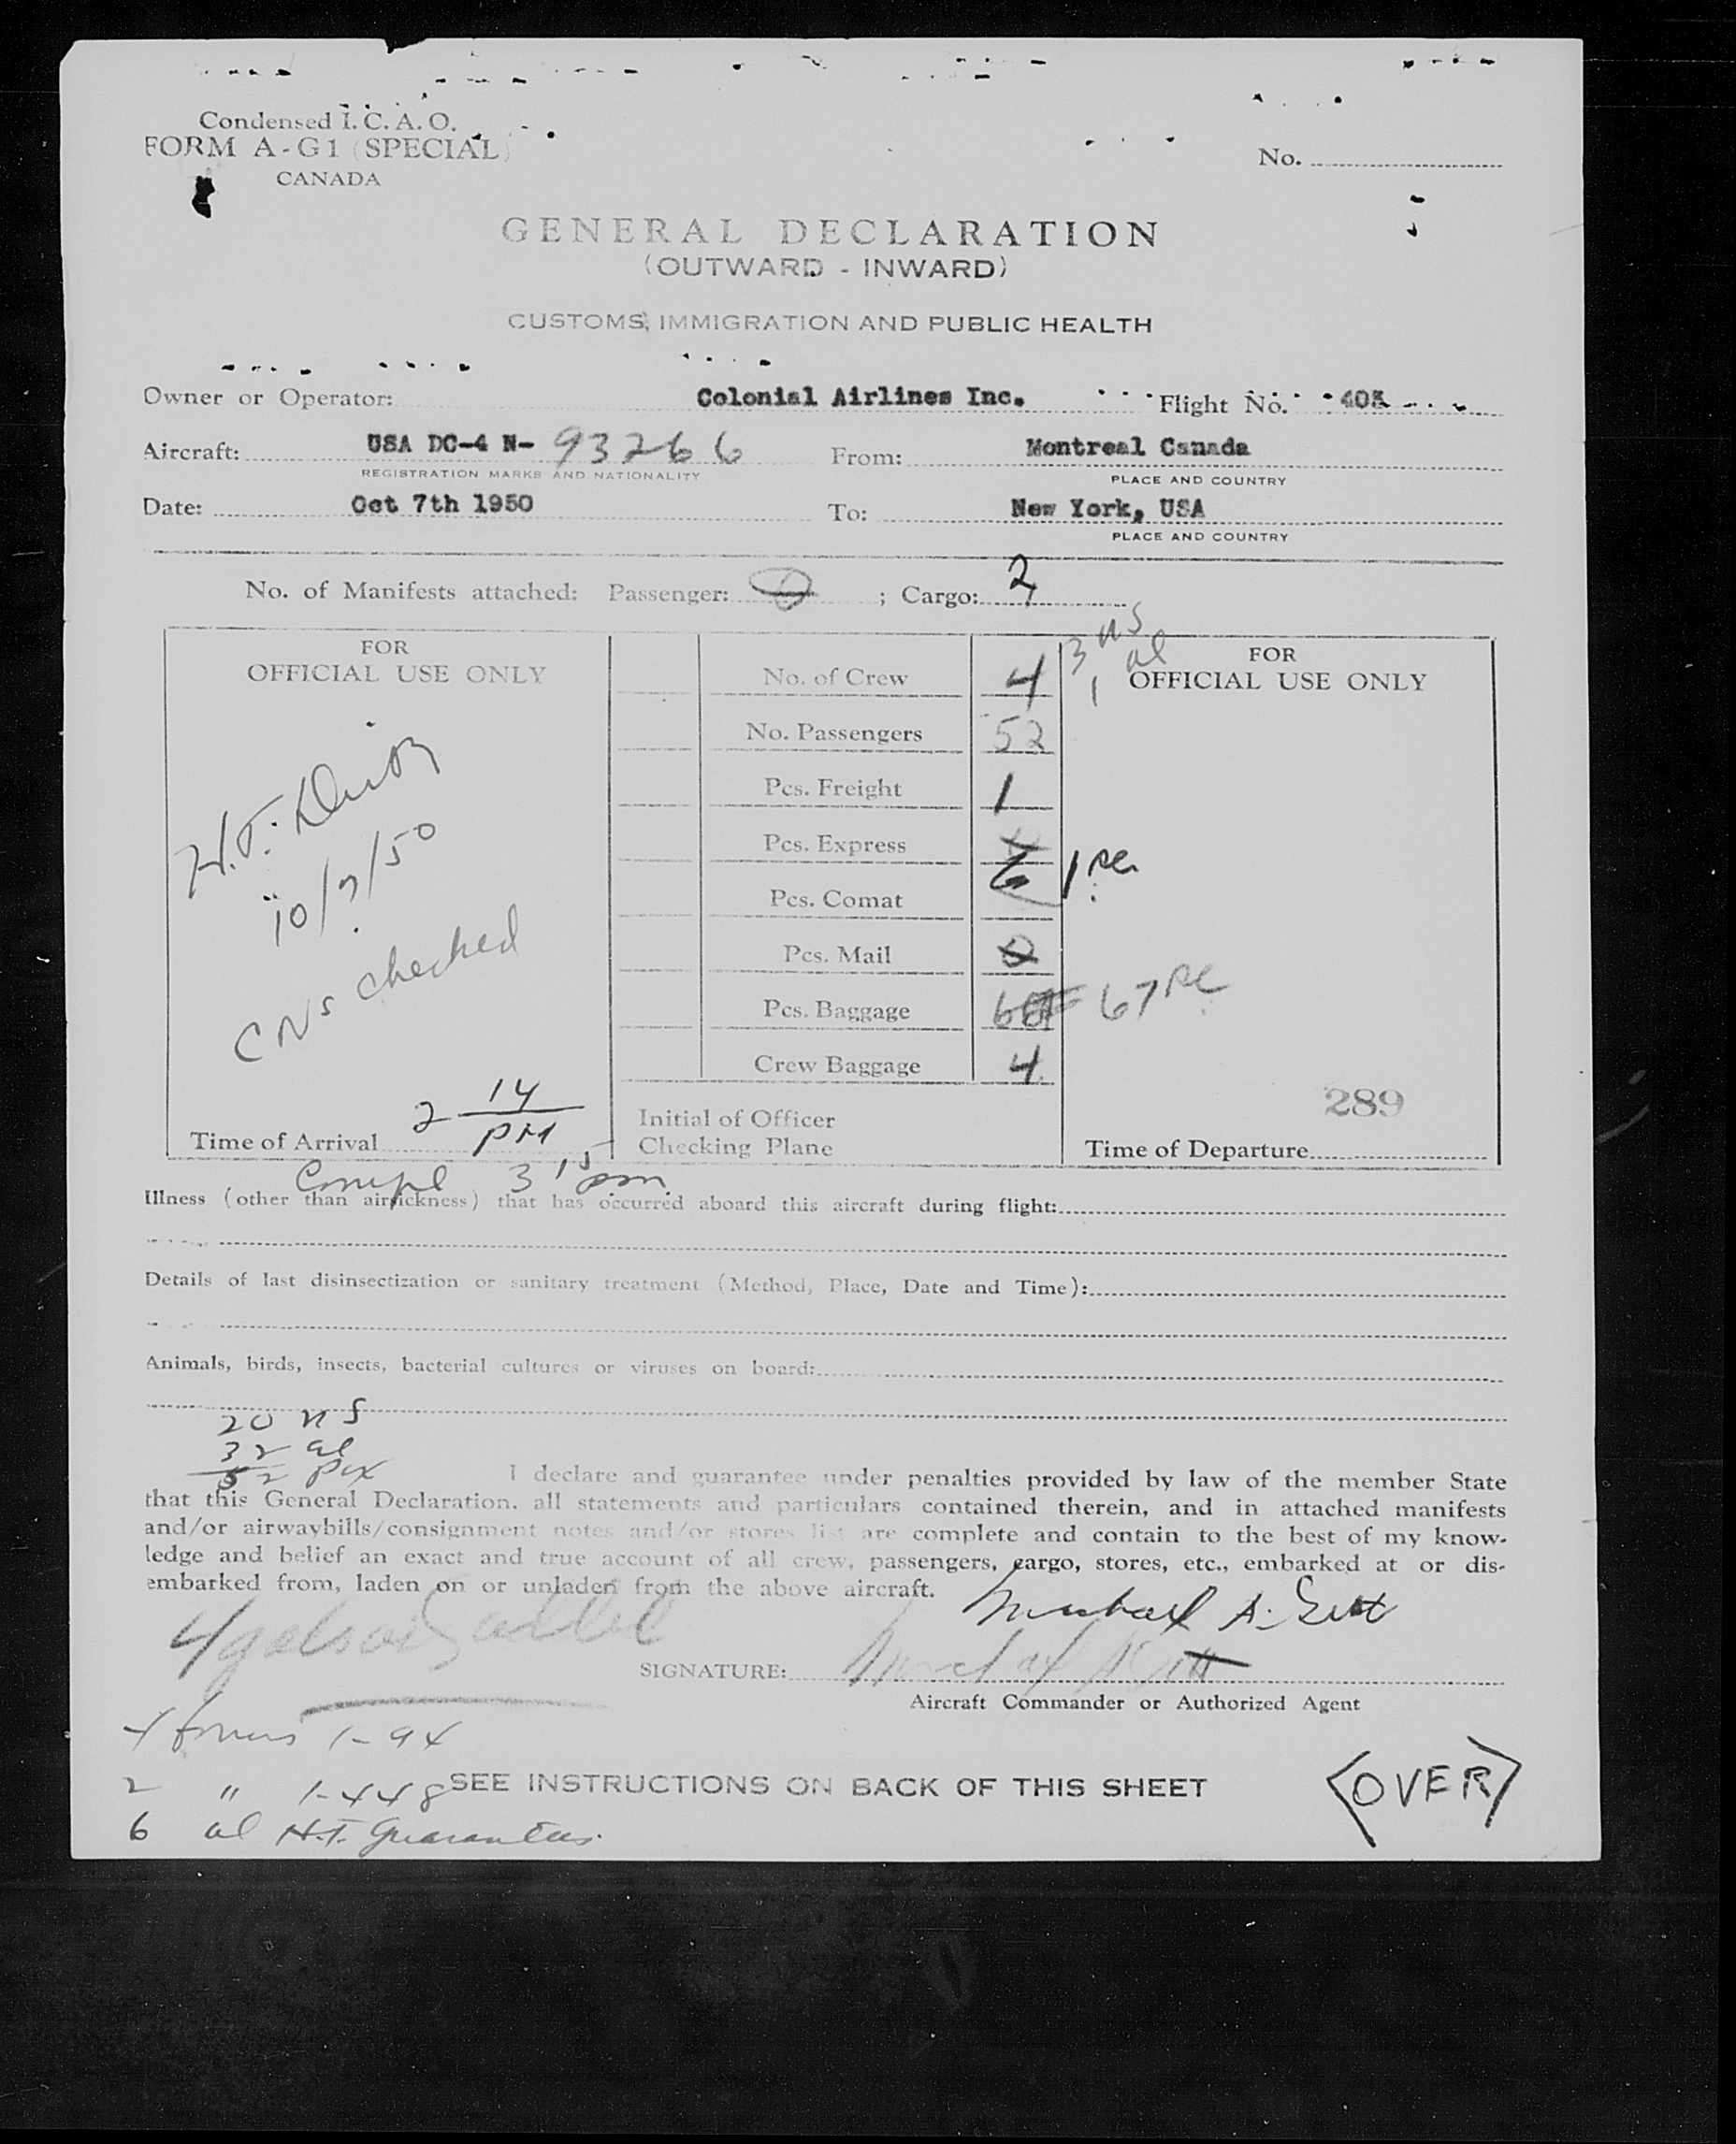 Condensed I.C.A.O.
FORM A-G1 (SPECIAL)
CANADA
No.
GENERAL DECLARATION
(OUTWARD - INWARD)
CUSTOMS, IMMIGRATION AND PUBLIC HEALTH
Owner or Operator: Colonial Airlines Inc. Flight No.
Aircraft: USA DC-4 N- 93266 From: Montreal Canada
REGISTRATION MARKS AND NATIONALITY PLACE AND COUNTRY
Date: Oct 7th 1950 To: New York, USA
PLACE AND COUNTRY
No. of Manifests attached: Passenger: 0 ; Cargo: 2
3 ns
1 al
FOR
OFFICIAL USE ONLY
H.T.
10/7/50
CNs checked
Time of Arrival 2 14 PM
Compl 3 15 pm.
No. of Crew 4
No. Passengers 52
Pcs. Freight 1
Pcs. Express 1 pc.
Pcs. Comat
Pcs. Mail 0
Pcs. Baggage 67 pc
Crew Baggage 4
Initial of Officer
Checking Plane
FOR
OFFICIAL USE ONLY
289
Time of Departure
Illness (other than airsickness) that has occurred aboard this aircraft during flight:
Details of last disinsectization or sanitary treatment (Method, Place, Date and Time):
Animals, birds, insects, bacterial cultures or viruses on board:
20 ns
32 al
52 pax
I declare and guarantee under penalties provided by law of the member State
that this General Declaration, all statements and particulars contained therein, and in attached manifests
and/or airwaybills/consignment notes and/or stores list are complete and contain to the best of my know-
ledge and belief an exact and true account of all crew, passengers, cargo, stores, etc., embarked at or dis-
embarked from, laden on or unladen from the above aircraft.
Michael A.
SIGNATURE: Michael
Aircraft Commander or Authorized Agent
4 forms 1-94
2 " 1-448
SEE INSTRUCTIONS ON BACK OF THIS SHEET
<OVER>
6 al H.T. Guarantees.